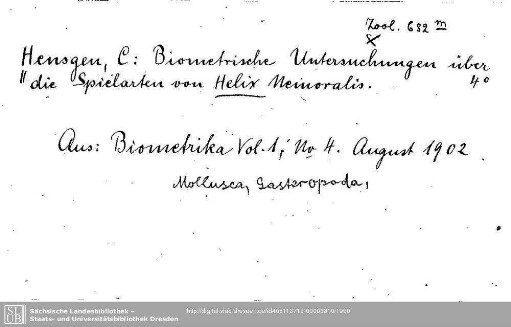 Zool. 682 m
Hensgen, C: Biometrische Untersuchungen über
die Spielarten von Helix Nemoralis. 4°
Aus: Biometrika Vol. 1; No 4. August 1902.
Mollusca, Gasteropoda,
Sächsische Landesbibliothek –
Staats- und Universitätsbibliothek Dresden